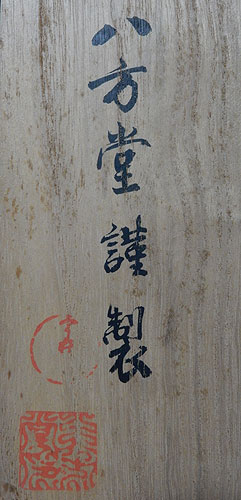 八方堂謹製